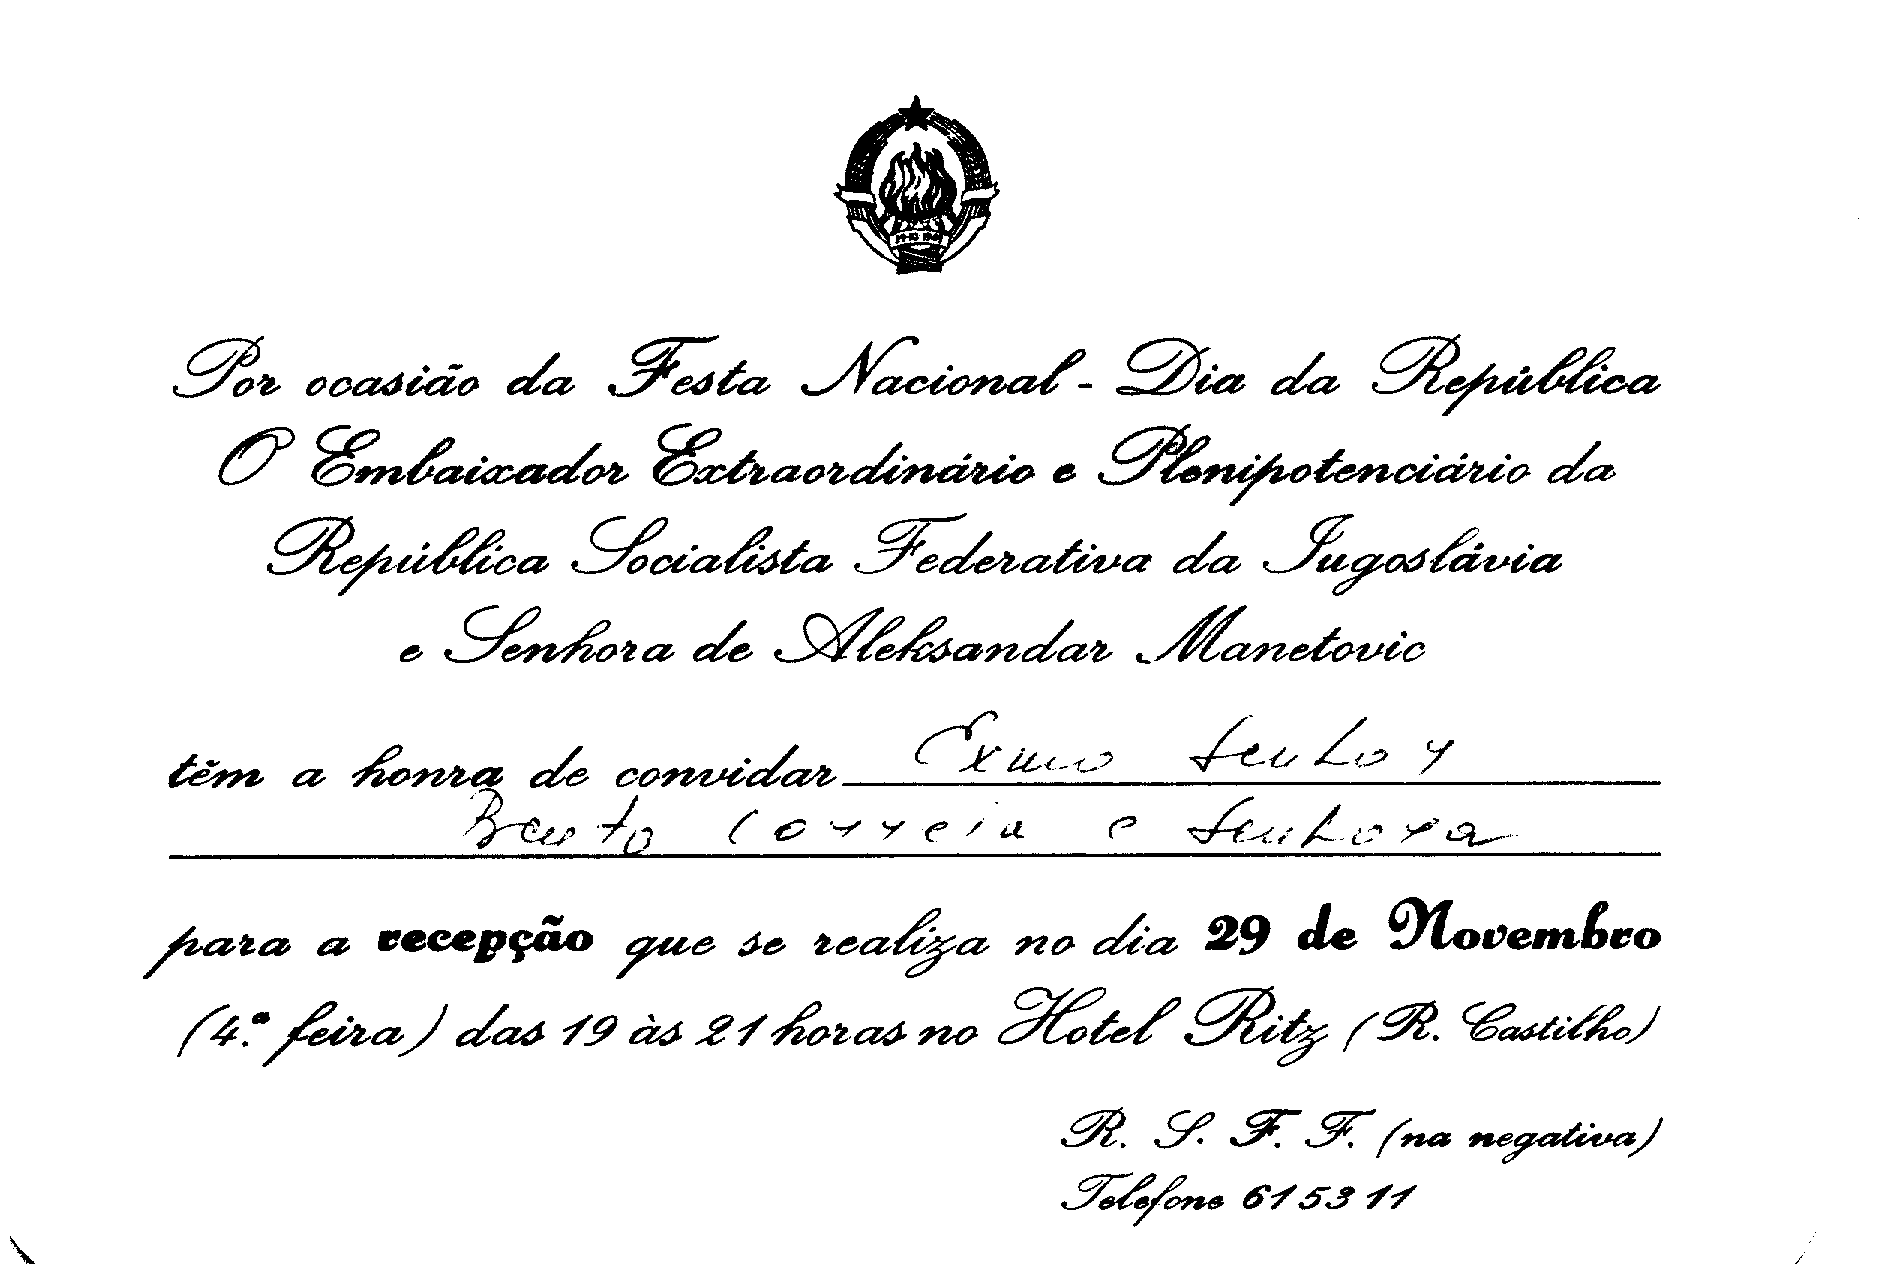 Por ocasião da Festa Nacional - Dia da República
O Embaixador Extraordinário e Plenipotenciário da
República Socialista Federativa da Jugoslávia
e Senhora de Aleksandar Manetovic
têm a honra de convidar Exmo Senhor
Bento Correia e Senhora
para a recepção que se realiza no dia 29 de Novembro
(4.ª feira) das 19 às 21 horas no Hotel Ritz (R. Castilho)
R. S. F. F. (na negativa)
Telefone 615311